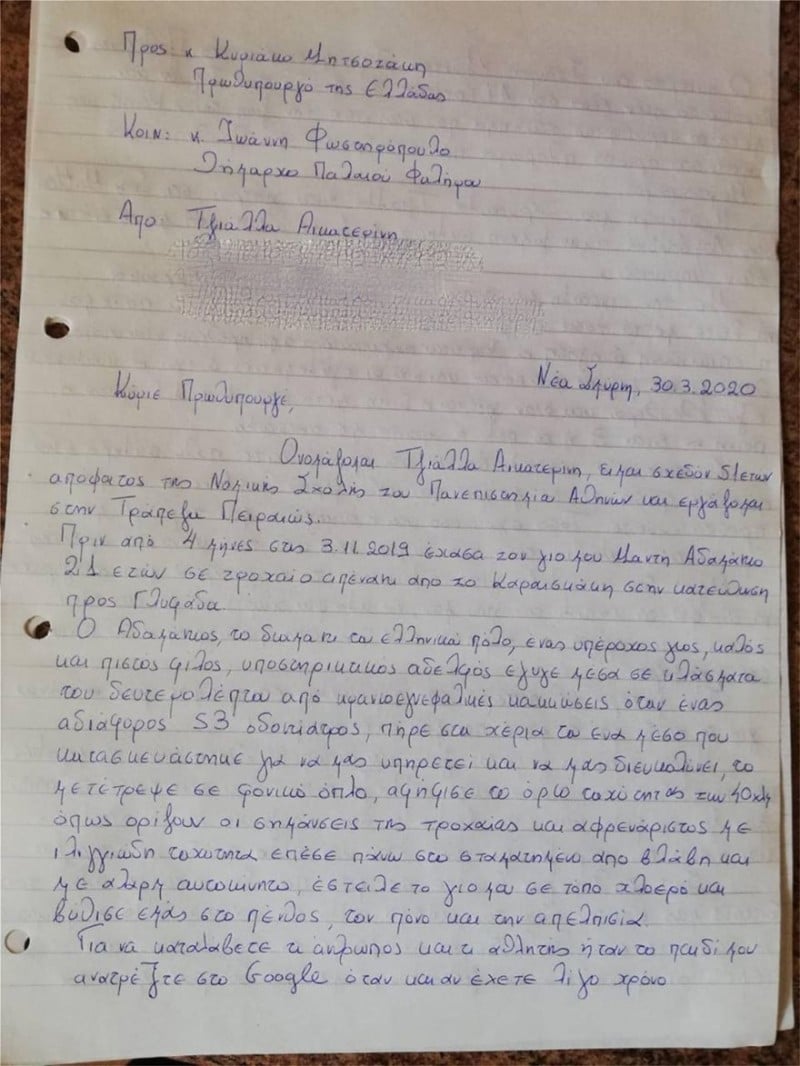 Προς: κ Κυριάκο Μητσοτάκη
Πρωθυπουργό της Ελλάδας
Κοιν: κ. Ιωάννη Φωστηρόπουλο
Δήμαρχο Παλαιού Φαλήρου
Από: Τζιάλλα Αικατερίνη
Νέα Σμύρνη, 30.3.2020
Κύριε Πρωθυπουργέ,
Ονομάζομαι Τζιάλλα Αικατερίνη, είμαι σχεδόν 51 ετών
απόφοιτος της Νομικής Σχολής του Πανεπιστημίου Αθηνών και εργάζομαι
στην Τράπεζα Πειραιώς.
Πριν από 4 μήνες στις 3.11.2019 έχασα τον γιο μου Μαντη Αδαμάντιο
21 ετών σε τροχαίο απέναντι από το Καραισκάκη στην κατεύθυνση
προς Γλυφάδα.
Ο Αδαμάντιος, το διαμάντι του ελληνικού πόλο, ένας υπέροχος γιος, καλός
και πιστός φίλος, υποστηρικτικός αδελφός έφυγε μέσα σε κλάσματα
του δευτερολέπτου από κρανιοεγκεφαλικές κακώσεις όταν ένας
αδιάφορος 53 οδοντίατρος, πήρε στα χέρια του ένα μέσο που
κατασκευάστηκε για να μας υπηρετεί και να μας διευκολύνει, το
μετέτρεψε σε φονικό όπλο, αψήφισε το όριο ταχύτητας των 40χλμ
όπως ορίζουν οι σημάνσεις της τροχαίας και αφρενάριστος με
ιλιγγιώδη ταχύτητα έπεσε πάνω στο σταματημένο από βλάβη και
με αλαρμ αυτοκίνητο, έστειλε το γιο μου σε τόπο χλοερό και
βύθισε εμάς στο πένθος, τον πόνο και την απελπισία.
Για να καταλάβετε τι άνθρωπος και τι αθλητής ήταν το παιδί μου
ανατρέξτε στο Google όταν και αν έχετε λίγο χρόνο